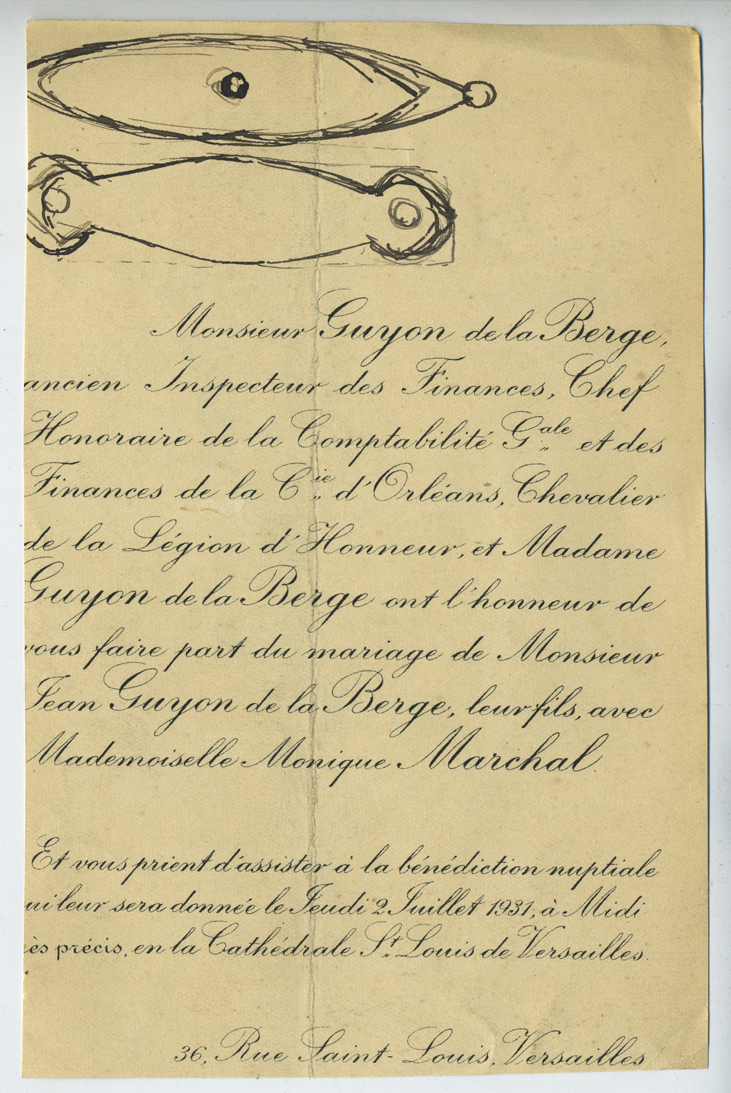 Monsieur Guyon de la Berge,
ancien Inspecteur des Finances, Chef
Honoraire de la Comptabilité Gale et des
Finances de la Cie d'Orléans, Chevalier
de la Légion d'Honneur, et Madame
Guyon de la Berge ont l'honneur de
vous faire part du mariage de Monsieur
Jean Guyon de la Berge, leur fils, avec
Mademoiselle Monique Marchal.
Et vous prient d'assister à la bénédiction nuptiale
ui leur sera donnée le Jeudi 2 Juillet 1931, à Midi
ès précis, en la Cathédrale St. Louis de Versailles.
36, Rue Saint-Louis, Versailles